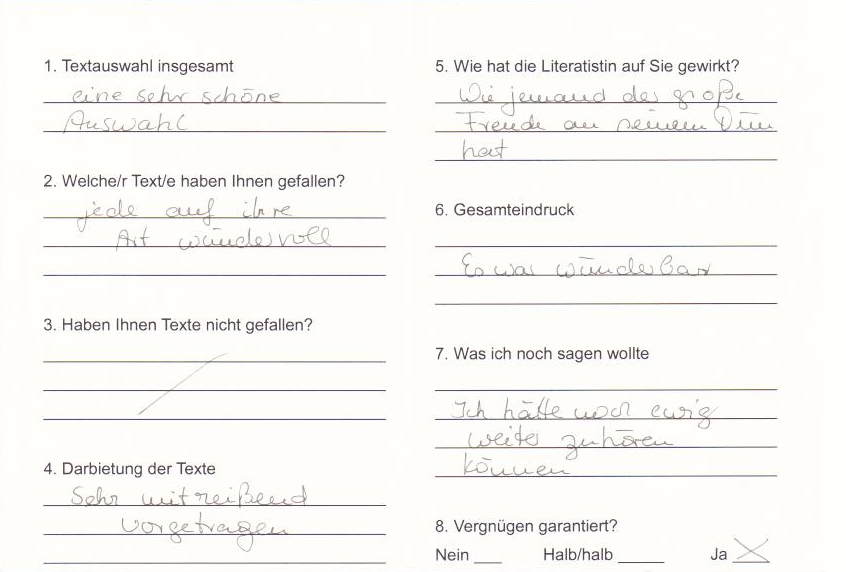 1. Textauswahl insgesamt
eine sehr schöne
Auswahl
2. Welche/r Text/e haben Ihnen gefallen?
jede auf ihre
Art wundervoll
3. Haben Ihnen Texte nicht gefallen?
4. Darbietung der Texte
Sehr mitreißend
vorgetragen
5. Wie hat die Literatistin auf Sie gewirkt?
Wie jemand der große
Freude an seinem Tun
hat
6. Gesamteindruck
Es war wunderbar
7. Was ich noch sagen wollte
Ich hätte noch ewig
weiter zuhören
können
8. Vergnügen garantiert?
Nein ___ Halb/halb _____ Ja X